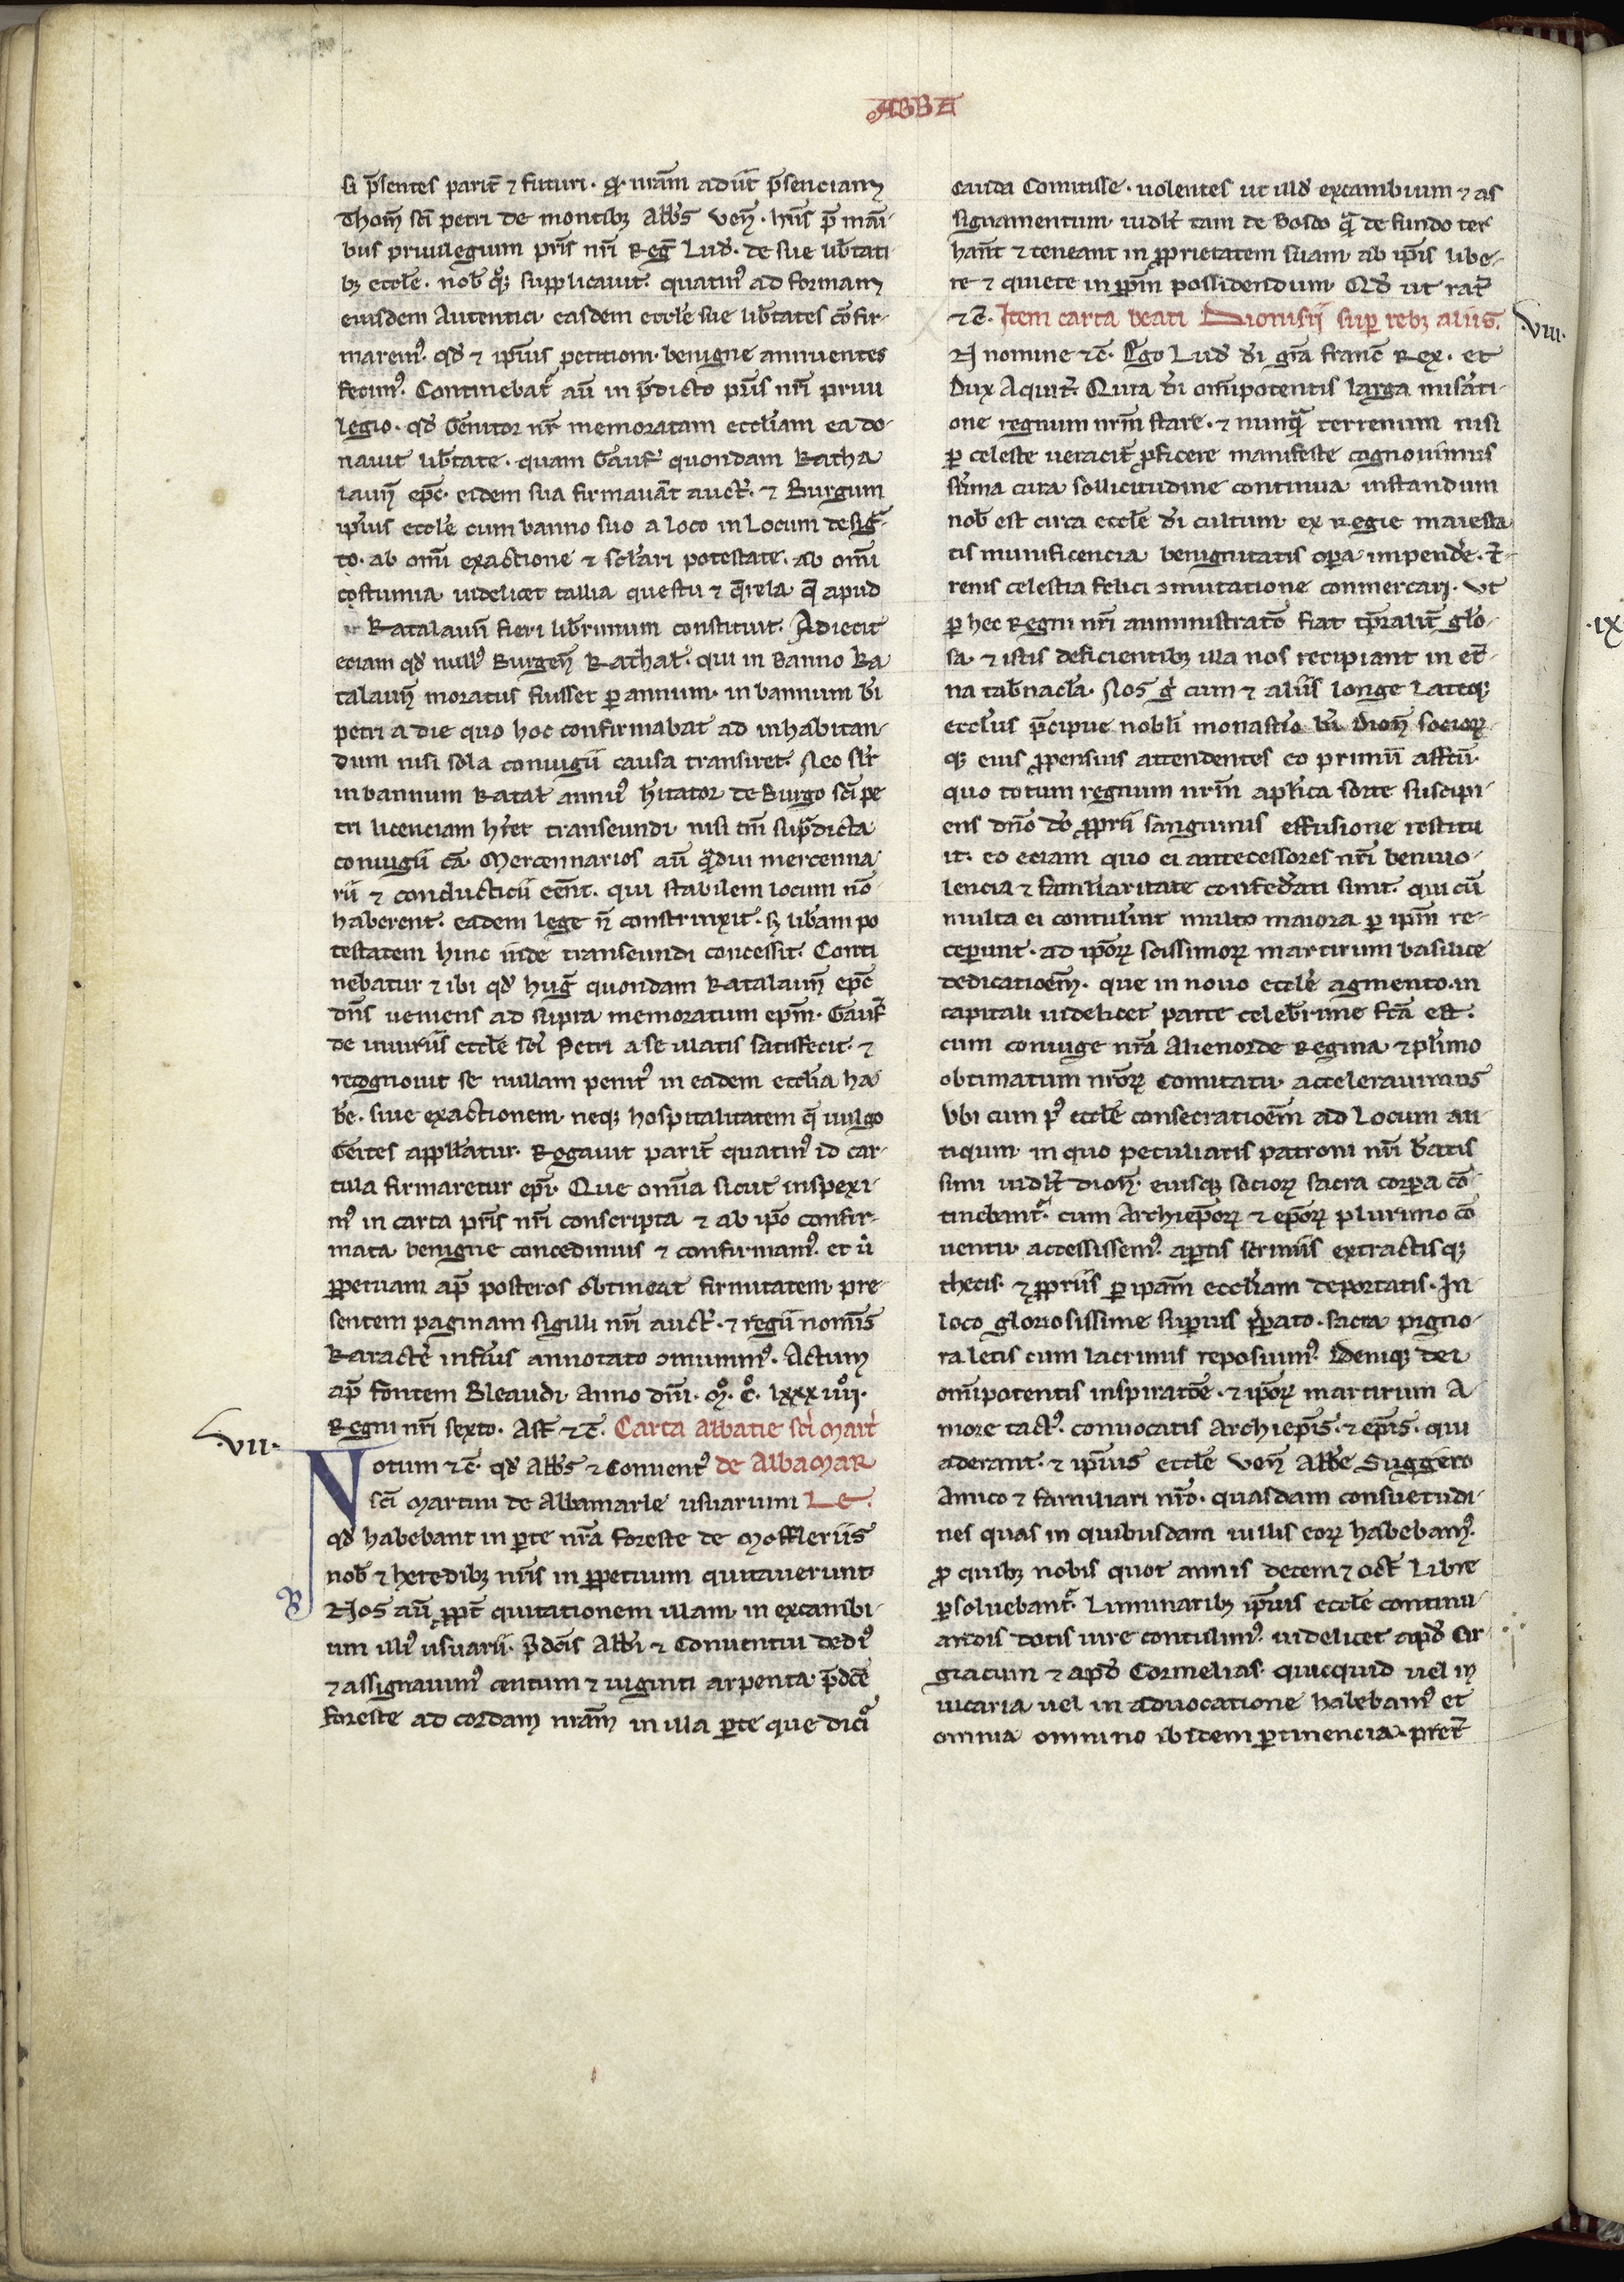 ABBA
si p̄sentes parit̄ ⁊ futuri. qd̓ nrām adiit p̄senciam
Thom̄ sc̄i petri de montibꝫ Abb̄s ven̄. hn̄s p̄ mani
bus priuilegium pr̄is nr̄i Reḡ Lud̓. de sue lib̄tati
bꝫ eccl̄e. nob̄ qꝫ supplicauit. quatin᷒ ad formam
eiusdem Autentici easdem eccl̄e sue lib̄tates cōfir-
marem᷒. qd̓ ⁊ ip̄ius petitiom̄ benigne annuentes
fecim᷒. Continebat̓ au̅ in p̄dicto pr̄is nr̄i priui
legio. qd̓ Genitor nr̄ memoratam eccl̄iam ea do-
nauit lib̄tate. quam Gauf̓ quondam Katha
laun̄ ep̄c. eidem sua firmauāt auct̓. ⁊ Burgum
ip̄ius eccl̄e cum banno suo a loco in Locum desig̓-
to. ab om̄i exactione ⁊ sclari potestate. ab om̄i
costumia videlicet tallia questu ⁊ q̄rela q̄ apud
Katalaun̄ fieri lib̄rimum constituit. Adiecit
eciam qd̓ null᷒ Burgen̄ Kathal̄. qui in Banno Ka
talaun̄ moratus fuisset ꝑ annum. in bannum b̄i
petri a die quo hoc confirmabat ad inhabitan-
dum nisi sola coniugii causa transiret. Nec sil̄r
in bannum Katal̄ anni᷒ h̓itator de Burgo sc̄i pe
tri licenciam h̓ret transeundi nisi tm̄ sup̓dicta
coniugii cā. Mercennarios au̅ q̓mdiu mercenna
rii ⁊ conducticii eēnt. qui stabilem locum nō
haberent. eadem lege n̄ constrinxit. sꝫ lib̄am po
testatem hinc inde transeundi concessit. Conti
nebatur ⁊ ibi qd̓ hug̓ quondam Katalaun̄ ep̄c
dn̄s ueniens ad supra memoratum ep̄m. Gauf̓
de iniuriis eccl̄e sc̄i Petri a se illatis satisfecit. ⁊
recognouit se nullam penit᷒ in eadem eccl̄ia ha
b̄e. siue exactionem neqꝫ hospitalitatem q̄ uulgo
Geites appll̄atur. Rogauit parit̄ quatin᷒ id car-
tula firmaretur ep̄i. Que om̄ia sicut inspexi-
m᷒ in carta pr̄is nr̄i conscripta ⁊ ab ip̄o confir-
mata benigne concedimus ⁊ confirmam᷒. et ut̓
ꝑpetuam ap̄ posteros obtineat firmitatem. pre-
sentem paginam sigilli nr̄i auct̓. ⁊ regii nom̄is
Karactē inferi᷒ annotato ꝯmunim᷒. Actum
ap̄ fontem Bleaudi Anno dn̄i. m̊. c̊. lxxx iiii̊.
Regni nr̄i sexto. Ast̄ ⁊c̄. Carta Abbatie sc̄i mart̓
.vii. Notum ⁊c̄. qd̓ Abb̄s ⁊ Conuent᷒ de AlbaMAR
sc̄i Martini de Albamarle usuarium LE.
qd̓ habebant in ꝑte nr̄a foreste de Moffleriis
nob̄ ⁊ heredibꝫ nr̄is in ꝑpetuum quitauerunt
Nos au̅ ꝓpt̄ quitationem illam in excambi-
um illi᷒ usuarii. p̄dcīs Abb̄i ⁊ Conuentui dedi᷒
⁊ assignauim᷒ centum ⁊ uiginti arpenta p̄dc̄e
foreste ad cordam nrām in illa ꝑte que dicit̓
Cauda Comitisse. uolentes ut illd̓ excambium ⁊ as
signamentum uidel̄t tam de Bosco q̓m de fundo tere
han̄t ⁊ teneant in ꝓprietatem suam ab ip̄is libe-
re ⁊ quiete in ꝑpm̄ possidendum. Qd̓ ut rat̄
⁊c̄. Item carta beati Dionisii sup̄ rebꝫ aliis. .viii.
N nomine ⁊c̄. Ego Lud̓ d̄i gr̄a franc̄ Rex. et
Dux Aquit̄. Quia d̄i om̄ipotentis larga mis̄ati-
one regnum nrm̄ stare. ⁊ nunq̓m terrenum nisi
ꝑ celeste ueracit̄ ꝓficere manifeste cognouimus
sum̄a cura sollicitudine continua instandum
nob̄ est circa eccl̄e d̄i cultum ex Regie maiesta
tis munificencia benignitatis oꝑa impend̄e. t̄-
renis celestia felici ꝯmutatione conmercari. Ut
ꝑ hec Regni nr̄i amministratō fiat tp̄ralit̄ glo-
sa. ⁊ istis deficientibꝫ illa nos recipiant in et̄-
na tab̄nacl̄a. Nos g̓ cum ⁊ aliis longe Lateqꝫ
eccl̄iis p̄cipue nobili monast̄io b̄i Dion̄ sociorꝝ
qꝫ eius ꝓpensius attendentes eo primū affc̄tū.
quo totum regnum nrm̄ ap̄lica sorte suscipi-
ens dn̄o d̄o ꝓprii sanguinis effusione restitu
it. eo eciam quo ei antecessores nr̄i beniuo-
lencia ⁊ familiaritate confed̄ati sunt. qui cū
multa ei contuleīnt multo maiora ꝑ ip̄m re-
ceꝑunt. ad ip̄orꝝ sc̄issimorꝝ martirum basilice
dedicatioēm. que in nouo eccl̄e agmento. in
capitali uidelicet parte celeb̄rime fc̄a est.
cum coniuge nr̄a Alienorde Regina ⁊ pl̄imo
obtimatum nrōrꝝ Comitatu accelerauimus
Ubi cum p᷒ eccl̄e consecratioēm ad Locum an-
tiqum in quo peculiatis patroni nr̄i beatis
simi uidel̄t dion̄. eiusqꝫ sociorꝝ sacra corꝑa cō-
tinebant̓. cum Archiep̄orꝝ ⁊ ep̄orꝝ plurimo cō
uentu accessissem᷒. aꝑtis scriniis extractisqꝫ
thecis. ⁊ ꝓpriis ꝑ ipam̄ eccl̄iam deportatis. In
loco gloriosissime suꝑius p̄ꝑato. sacra pigno-
ra letis cum lacrimis reposuim᷒. Deniqꝫ dei
om̄ipotentis inspiratōe. ⁊ ip̄orꝝ martirum A-
more tact᷒. conuocatis Archiep̄is. ⁊ ep̄is. qui
aderant. ⁊ ip̄ius eccl̄e ven̄ Abb̄e Suggero
Amico ⁊ familiari nr̄o. quasdam consuetudi-
nes quas in quibusdam uillis eorꝝ habebam᷒.
ꝓ quibꝫ nobis quot annis decem ⁊ oct̄ Libre
ꝑsoluebant̓. Luminaribꝫ ip̄ius eccl̄e continu-
andis totis iure contulim᷒. uidelicet apd̓ Cir-
giacum ⁊ apd̓ Cormelias. quicquid uel in
uicaria uel in aduocatione habebam᷒ et
omnia omnino ibidem ꝑtinencia. pret̄
.ix